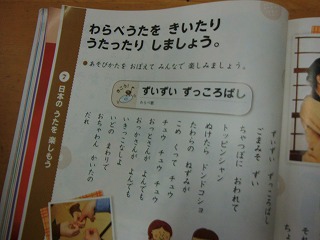 わらべうたを きいたり
うたったり しましょう。
● あそびかたを おぼえて みんなで 楽しみましょう。
ずいずい ずっころばし
わらべ歌
7 日本の うたを 楽しもう
ずいずい ずっころばし
ごまみそ ずい
ちゃつぼに おわれて
トッピンシャン
ぬけたら ドンドコショ
たわらの ねずみが
こめ くって チュウ
チュウ チュウ チュウ
おっとさんが よんでも
おっかさんが よんでも
いきっこなしよ
いどの まわりで
おちゃわん かいたの
だれ